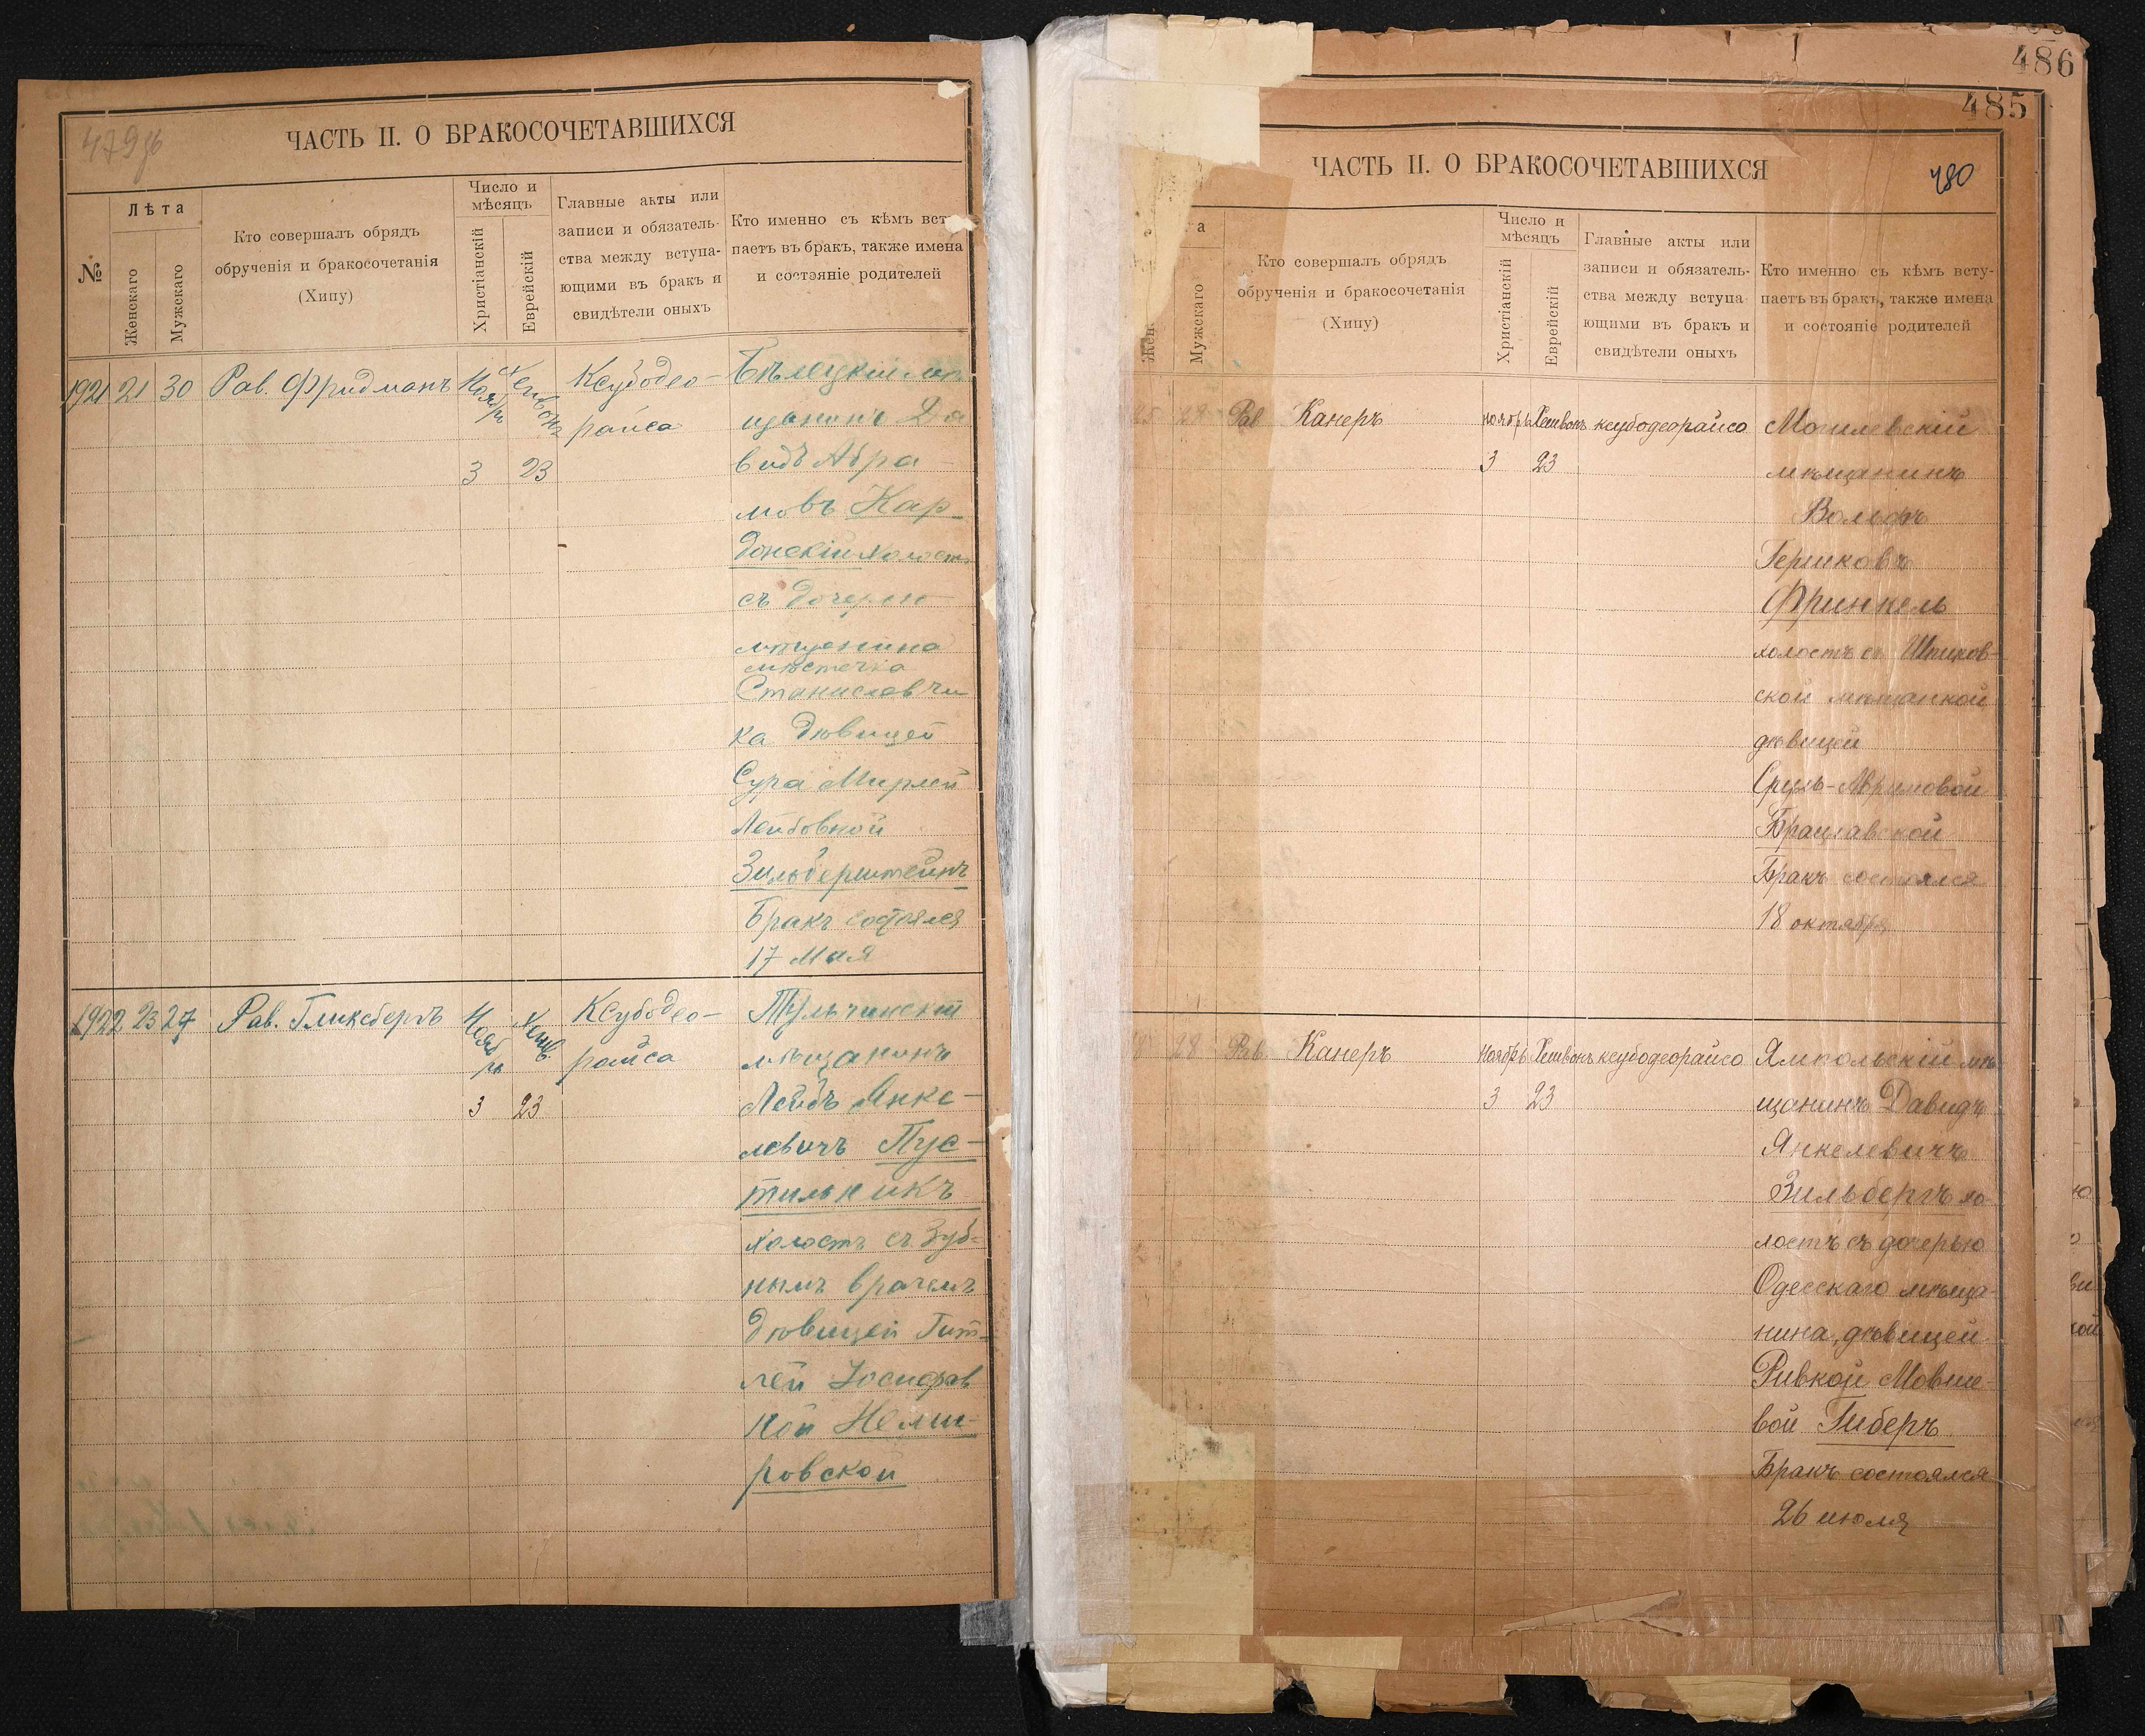 479об
ЧАСТЬ II. О БРАКОСОЧЕТАВШИХСЯ
№
Лѣта
Женскаго
Мужскаго
Кто совершалъ обрядъ
обрученія и бракосочетанія
(Хипу)
Число и
мѣсяцъ
Христіанскій
Еврейскій
Главные акты или
записи и обязатель-
ства между вступа-
ющими въ бракъ и
свидѣтели оныхъ
Кто именно съ кѣмъ всту
паетъ въ бракъ, также имена
и состояніе родителей
1921 21 30 Рав. Фридманъ
Ноябрь
Хешвонъ
3 23
Ксубодео-
райса
Бѣлецкій мѣ
щанинъ Да
видъ Абра-
мовъ Кар-
донскій холостъ
съ дочерью
мѣщанина
мѣстечка
Станиславчи
ка дѣвицей
Сура Мирлей
Лейбовной
Зильберштейнъ
Бракъ состоялся
17 Мая
1922 23 27 Рав. Гликсбергъ
Ноябрь
Хешв.
3 23
Ксубодео-
райса
Тульчинскій
мѣщанинъ
Лейбъ Янке-
левичъ Пус-
тильникъ
холостъ съ Зуб-
нымъ врачемъ
дѣвицей Гит-
лей Іосифов
ной Неми-
ровской
486
485
480
ЧАСТЬ II. О БРАКОСОЧЕТАВШИХСЯ
а
Жен
Мужскаго
Кто совершалъ обрядъ
обрученія и бракосочетанія
(Хипу)
Число и
мѣсяцъ
Христіанскій
Еврейскій
Главные акты или
записи и обязатель-
ства между вступа-
ющими въ бракъ и
свидѣтели оныхъ
Кто именно съ кѣмъ всту-
паетъ въ бракъ, также имена
и состояніе родителей
25 28 Рав Канеръ
ноябрь Хешвонъ ксубодеорайсо
3 23
Могилевскій
мѣщанинъ
Вольфъ
Гершковъ
Фринкель
холостъ съ Шпиков-
ской мѣщанкой
дѣвицей
Авримовой
Брацлавской
Бракъ состоялся
18 октября
28 Рав Канеръ
ноябрь Хешвонъ ксубодеорайсо
3 23
Ямпольскій мѣ
щанинъ Давидъ
Янкелевичъ
Зильбергъ хо
лостъ съ дочерью
Одесскаго мѣща-
нина, дѣвицей
Ривкой Мовше-
вой Гиберъ
Бракъ состоялся
26 июля